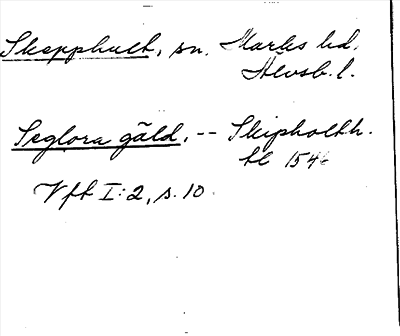 Skepphult, sn. Marks hd.
Älvsb. l.
Seglora gäld, -- Skipholth.
bl 1546
Vft I:2, s. 10